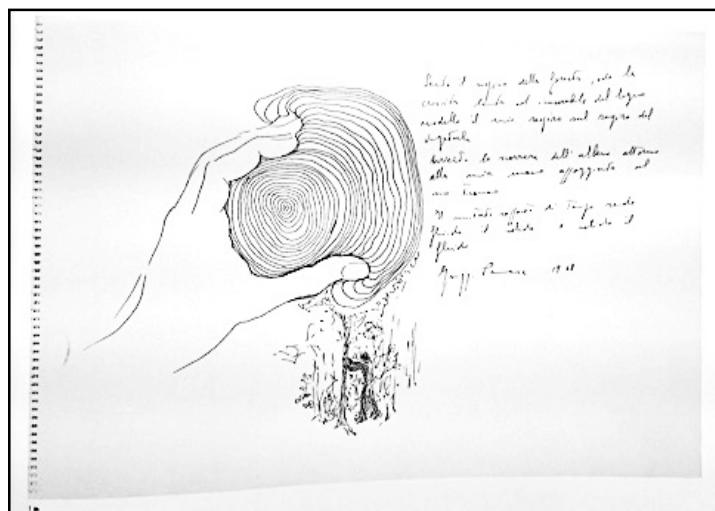 Sento il respiro della foresta, odo la
crescita lenta ed inesorabile del legno
modello il mio respiro sul respiro del
vegetale
avverto lo scorrere dell'albero attorno
alla mia mano appoggiata al
suo tronco
Il mutato rapporto di tempo rende
fluido il solido e solido il
fluido
Penone 1968